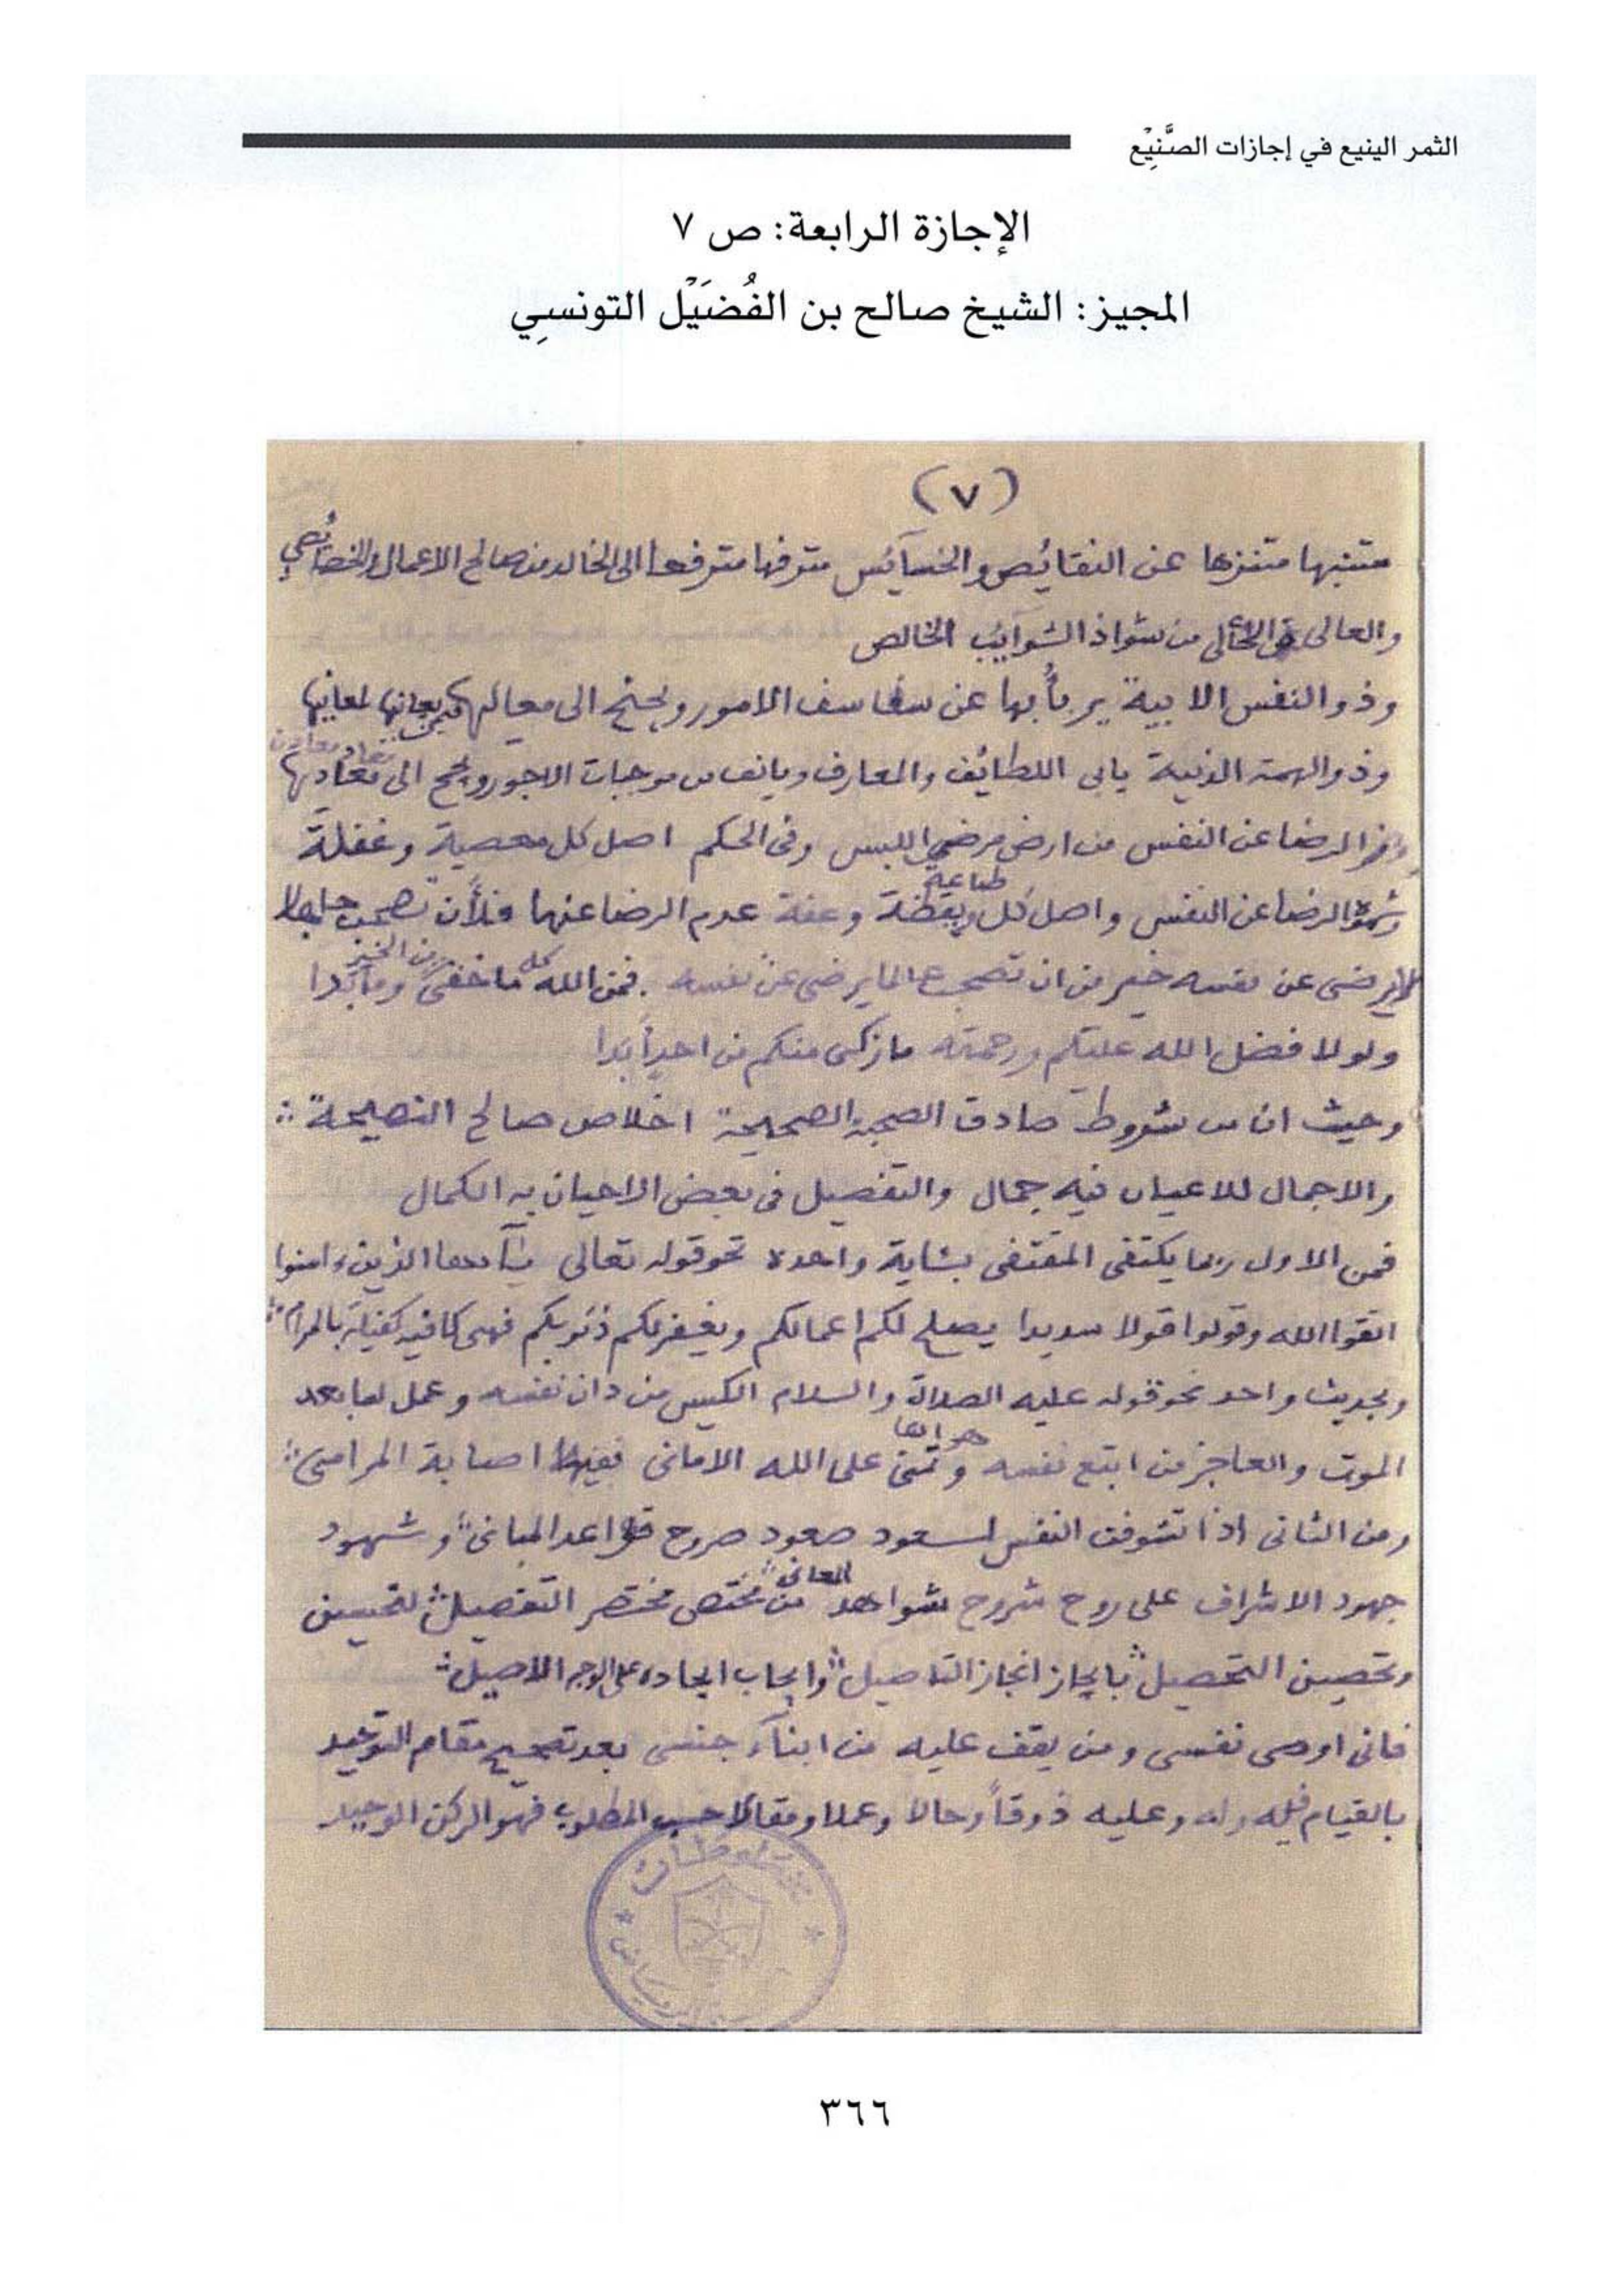 الثمر الينيع في إجازات الصَّنِيْع
الإجازة الرابعة: ص ٧
المجيز: الشيخ صالح بن الفُضَيْل التونسِي
(٧)
متنبها متنزها عن النقائص والخسآئس مترفها مترفعا الى الخالد من صالح الاعمال والخصائص
والعالى الخالى من شواذ الشوآيب الخالص
وذو النفس الابية يربأ بها عن سفاسف الامور ويجنح الى معاليها
وذو الهمة الدنية يابى اللطائف والمعارف ويانف من موجبات الاجور ويجمح الى
الرضا عن النفس من ارض مرضى اللبس وفى الحكم اصل كل معصية وغفلة
وشهوة الرضا عن النفس واصل كل طاعة ويقظة وعفة عدم الرضا عنها فلأن تصحب جاهلا
لا يرضى عن نفسه خير من ان تصحب عالما يرضى عن نفسه فمن الله كل ما خفى من الخير وما بدا
ولولا فضل الله عليكم ورحمته ما زكى منكم من احد أبدا
وحيث ان من شروط صادق الصحبة الصحيحة اخلاص صالح النصيحة ؛
والاجمال للاعيان فيه جمال والتفصيل فى بعض الاحيان به الكمال
فمن الاول ربما يكتفى المقتفى بئاية واحدة نحو قوله تعالى يٰآ ايها الذين ءامنوا
اتقوا الله وقولوا قولا سديدا يصلح لكم اعمالكم ويغفر لكم ذنوبكم فهى كافية كفيلة بالمرام ؛
وبحديث واحد نحو قوله عليه الصلاة والسلام الكيس من دان نفسه وعمل لما بعد
الموت والعاجز من اتبع نفسه هواها وتمنى على الله الامانى ففيها اصابة المرامى ؛
ومن الثانى اذا تشوفت النفس لسعود صعود صروح قواعد المبانى ؛ وشهود
جهود الاشراف على روح شروح شواهد المعانى ؛ من مختص مختصر التفصيل ؛ لتحسين
وتحصين التحصيل ؛ بايجاز انجاز التاصيل ؛ وايجاب ايجاده على الوجه الاصيل ؛
فانى اوصى نفسى ومن يقف عليه من ابنآء جنسى بعد تصحيح مقام التوحيد
بالقيام فيه وله وعليه ذوقاً وحالا وعملا ومقالا حسب المطلوب فهو الركن الوحيد
٣٦٦